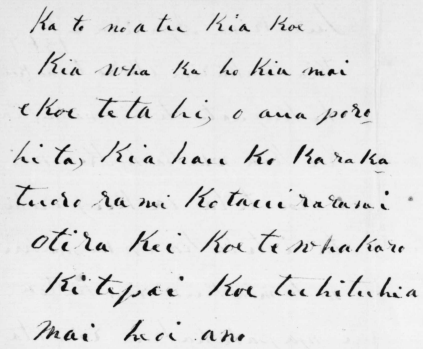 Ka to noatu Kia Koe
Kia wha ka ho Kia mai
e Koe te ta hi, o aua poro
hi ta, Kia hau Ko Karaka
Ko
otira Kei Koe te whakaro
Ki te pai Koe tuhituhia
mai heci ano